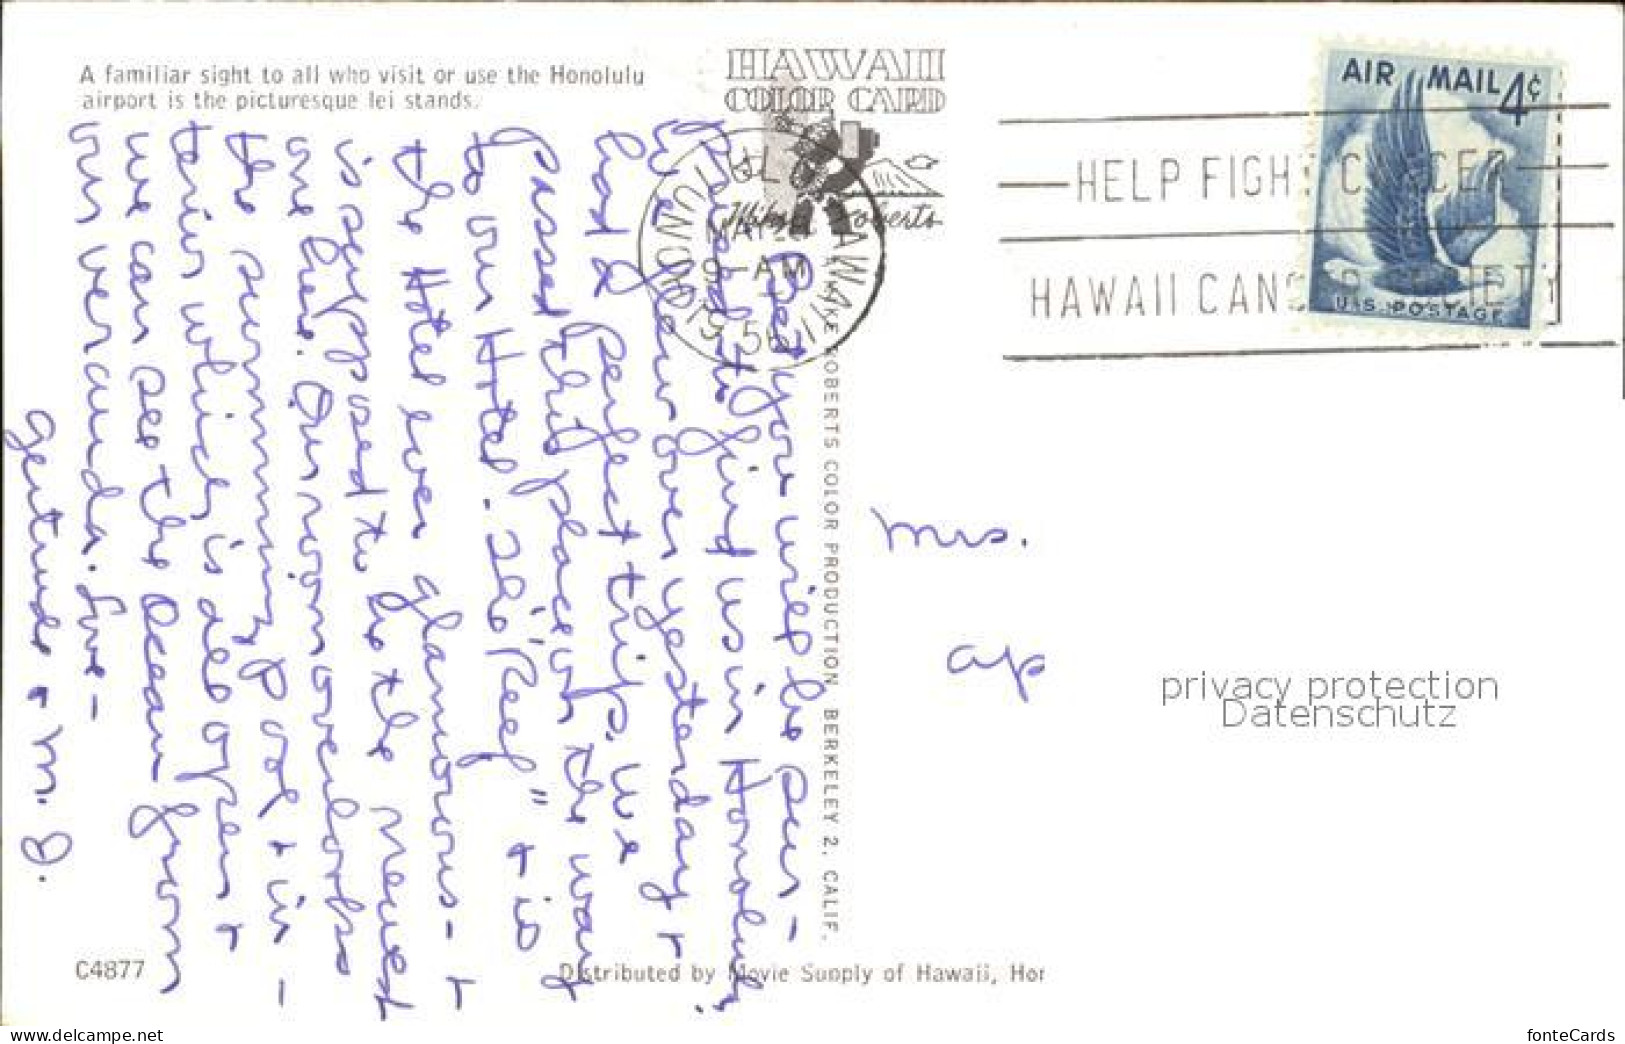 A familiar sight to all who visit or use the Honolulu
airport is the picturesque lei stands.
HAWAII
COLOR CARD
Mike Roberts
HONOLULU HAWAII
9-AM
1956
HELP FIGHT CANCER
HAWAII CANCER SOCIETY
AIR MAIL 4¢
U.S. POSTAGE
Bet you will be sur-
prised to find us in Honolulu.
We flew over yesterday +
had a perfect trip. We
passed this place on the way
to our Hotel. The "Reef" + is
the Hotel ever glamorous - +
is supposed to be the newest
one here. Our room overlooks
the swimming pool + in -
terior which is all open +
we can see the Ocean from
our veranda. Love -
Gertrude + M. J.
MIKE ROBERTS COLOR PRODUCTION, BERKELEY 2, CALIF.
Mrs.
Ap
privacy protection
Datenschutz
C4877
Distributed by Movie Supply of Hawaii, Hon
www.delcampe.net
fonteCards